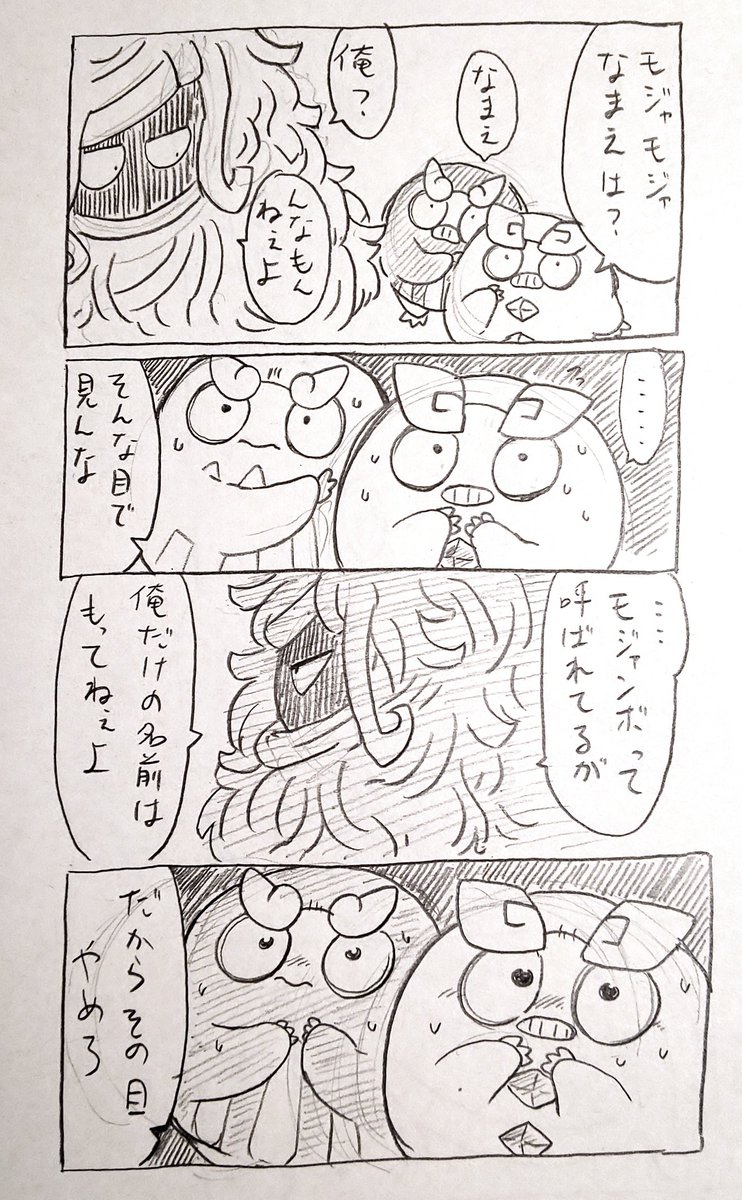 モジャモジャ
なまえは？
なまえ
俺？
んなもん
ねぇよ
……
そんな目で
見んな
……
モジャンボって
呼ばれてるが
俺だけの名前は
もってねぇよ
だからその目
やめろ